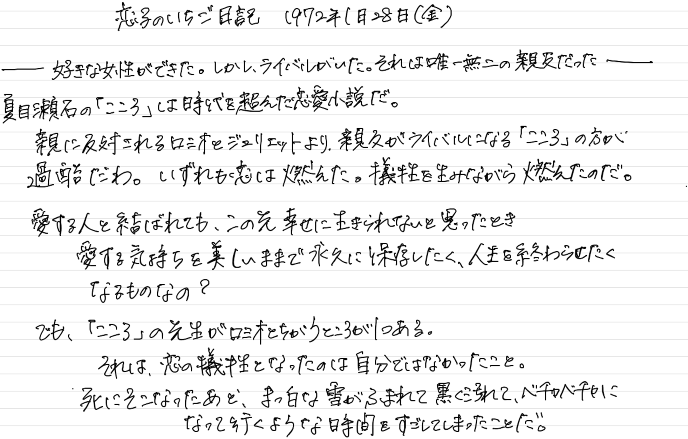 恋子のいちご日記 1972年1月28日(金)
―― 好きな女性ができた。しかし、ライバルがいた。それは唯一無二の親友だった ――
夏目瀬石の「こころ」は時代を超えた恋愛小説だ。
親に反対されるロミオとジュリエットより、親友がライバルになる「こころ」の方が
過酷だわ。いずれも恋は燃えた。犠牲を生みながら燃えたのだ。
愛する人と結ばれても、この先幸せに生きられないと思ったとき
愛する気持ちを美しいままで永久に保存したく、人生を終わらせたく
なるものなの?
でも、「こころ」の先生がロミオとちがうところが1つある。
それは、恋の犠牲となったのは自分ではなかったこと。
死にそこなったあと、まっ白な雪がふまれて黒く汚れて、ベチャベチャに
なって行くような時間をすごしてしまったことだ。